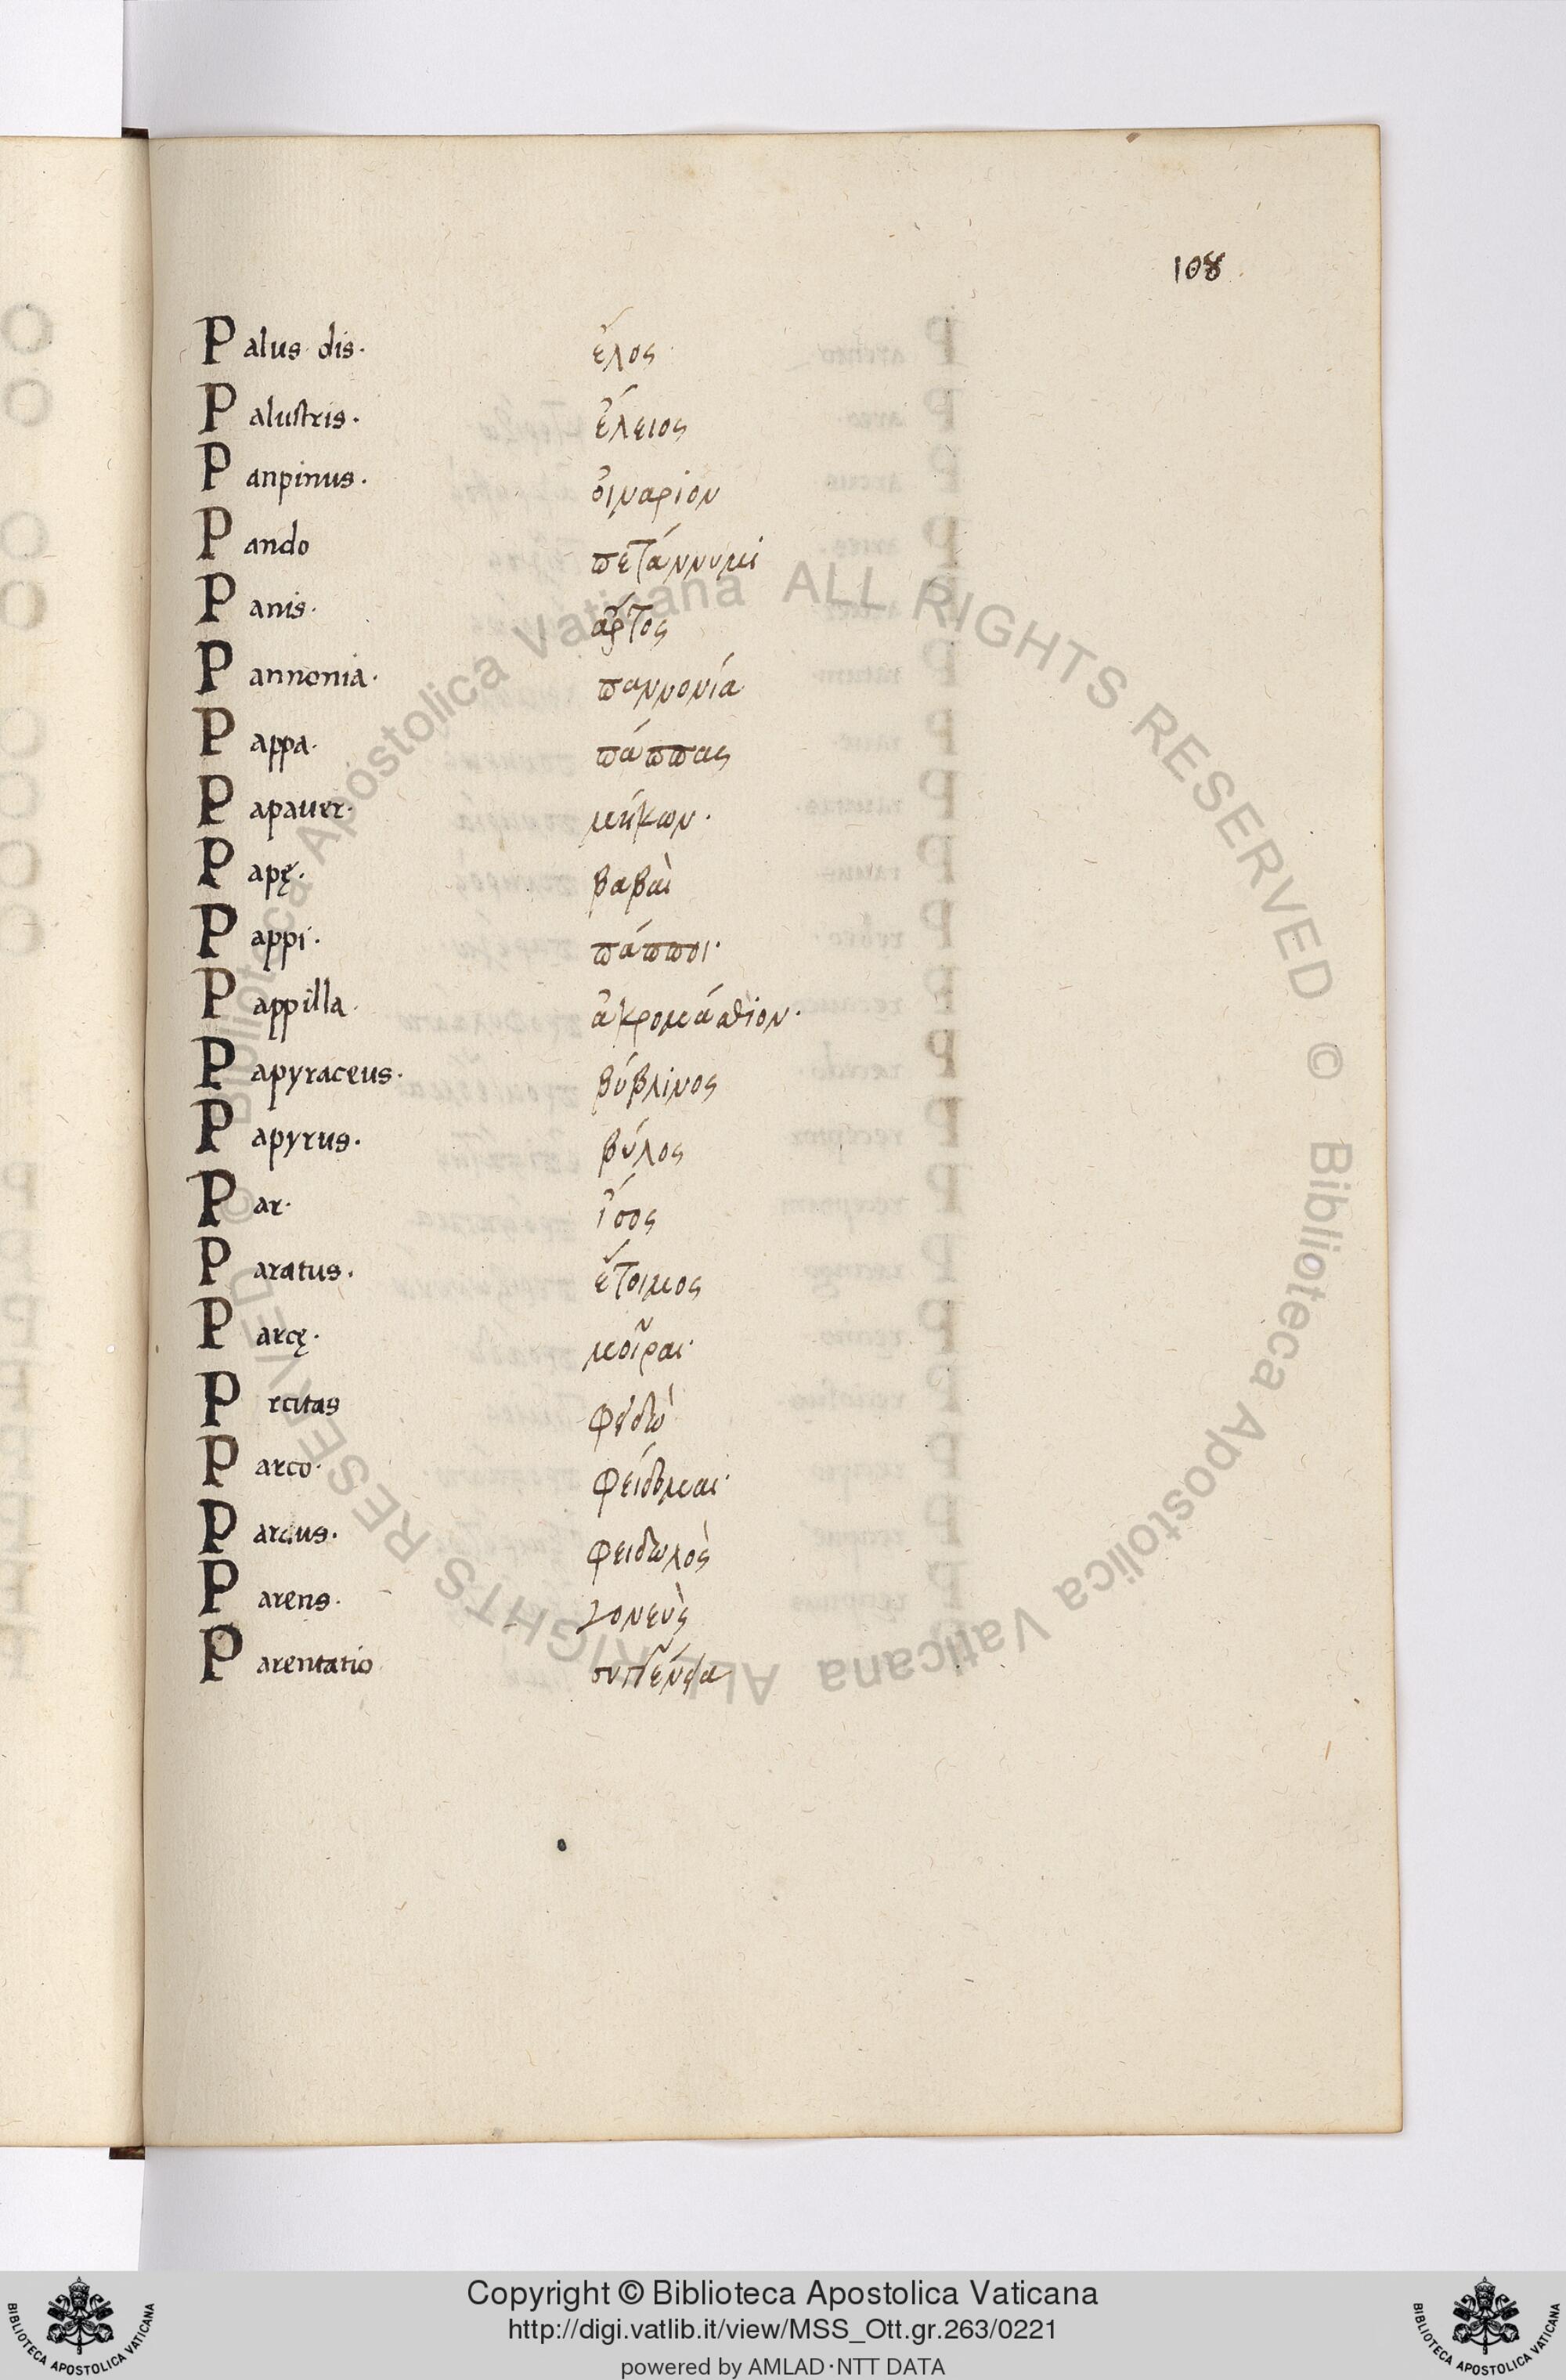 108
Palus dis· ἕλος
Palustris· ἕλειος
Panpinus· οἰναρίον
Pando πετάννυμι
Panis· ἄρτος
Pannonia· παννονία
Pappa· πάππας
Papauer· μήκων·
Papę· βαβαὶ
Pappi· πάπποι·
Pappilla· ἀκρομάσθιον·
Papyraceus· βύβλινος
Papyrus· βύλος
Par· ἴσος
Paratus· ἕτοιμος
Parcę· μοῖραι·
Prcitas
Parco· φείδομαι·
Parcus· φειδωλὸς
Parens· γονεὺς
Parentatio
Copyright © Biblioteca Apostolica Vaticana
http://digi.vatlib.it/view/MSS_Ott.gr.263/0221
powered by AMLAD·NTT DATA
BIBLIOTECA APOSTOLICA VATICANA
BIBLIOTECA APOSTOLICA VATICANA
© Biblioteca Apostolica Vaticana ALL RIGHTS RESERVED
© Biblioteca Apostolica Vaticana ALL RIGHTS RESERVED